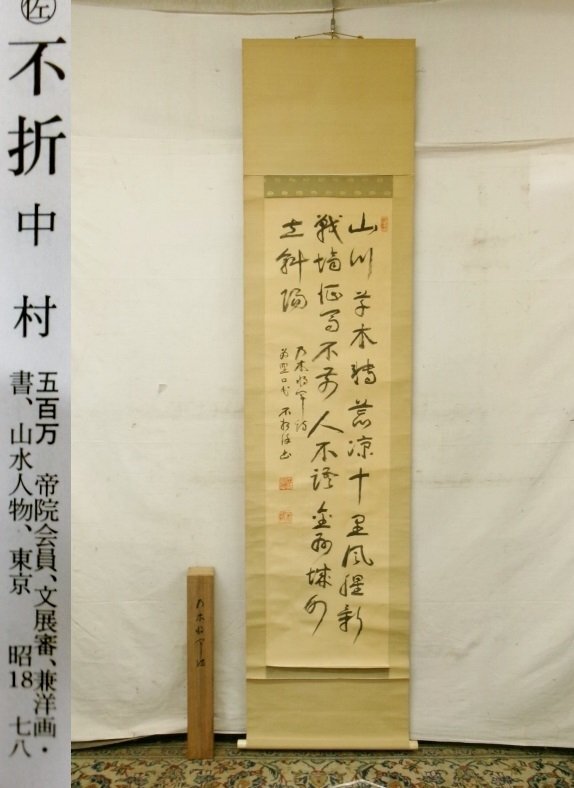 佐
不折 中村
五百万 帝院会員、文展審、兼洋画・
書、山水人物、東京 昭18 七八
山川草木轉荒涼十里風腥新
戰場征馬不前人不語金州城外
立斜陽
乃木将軍詩
不折
乃木将軍詩